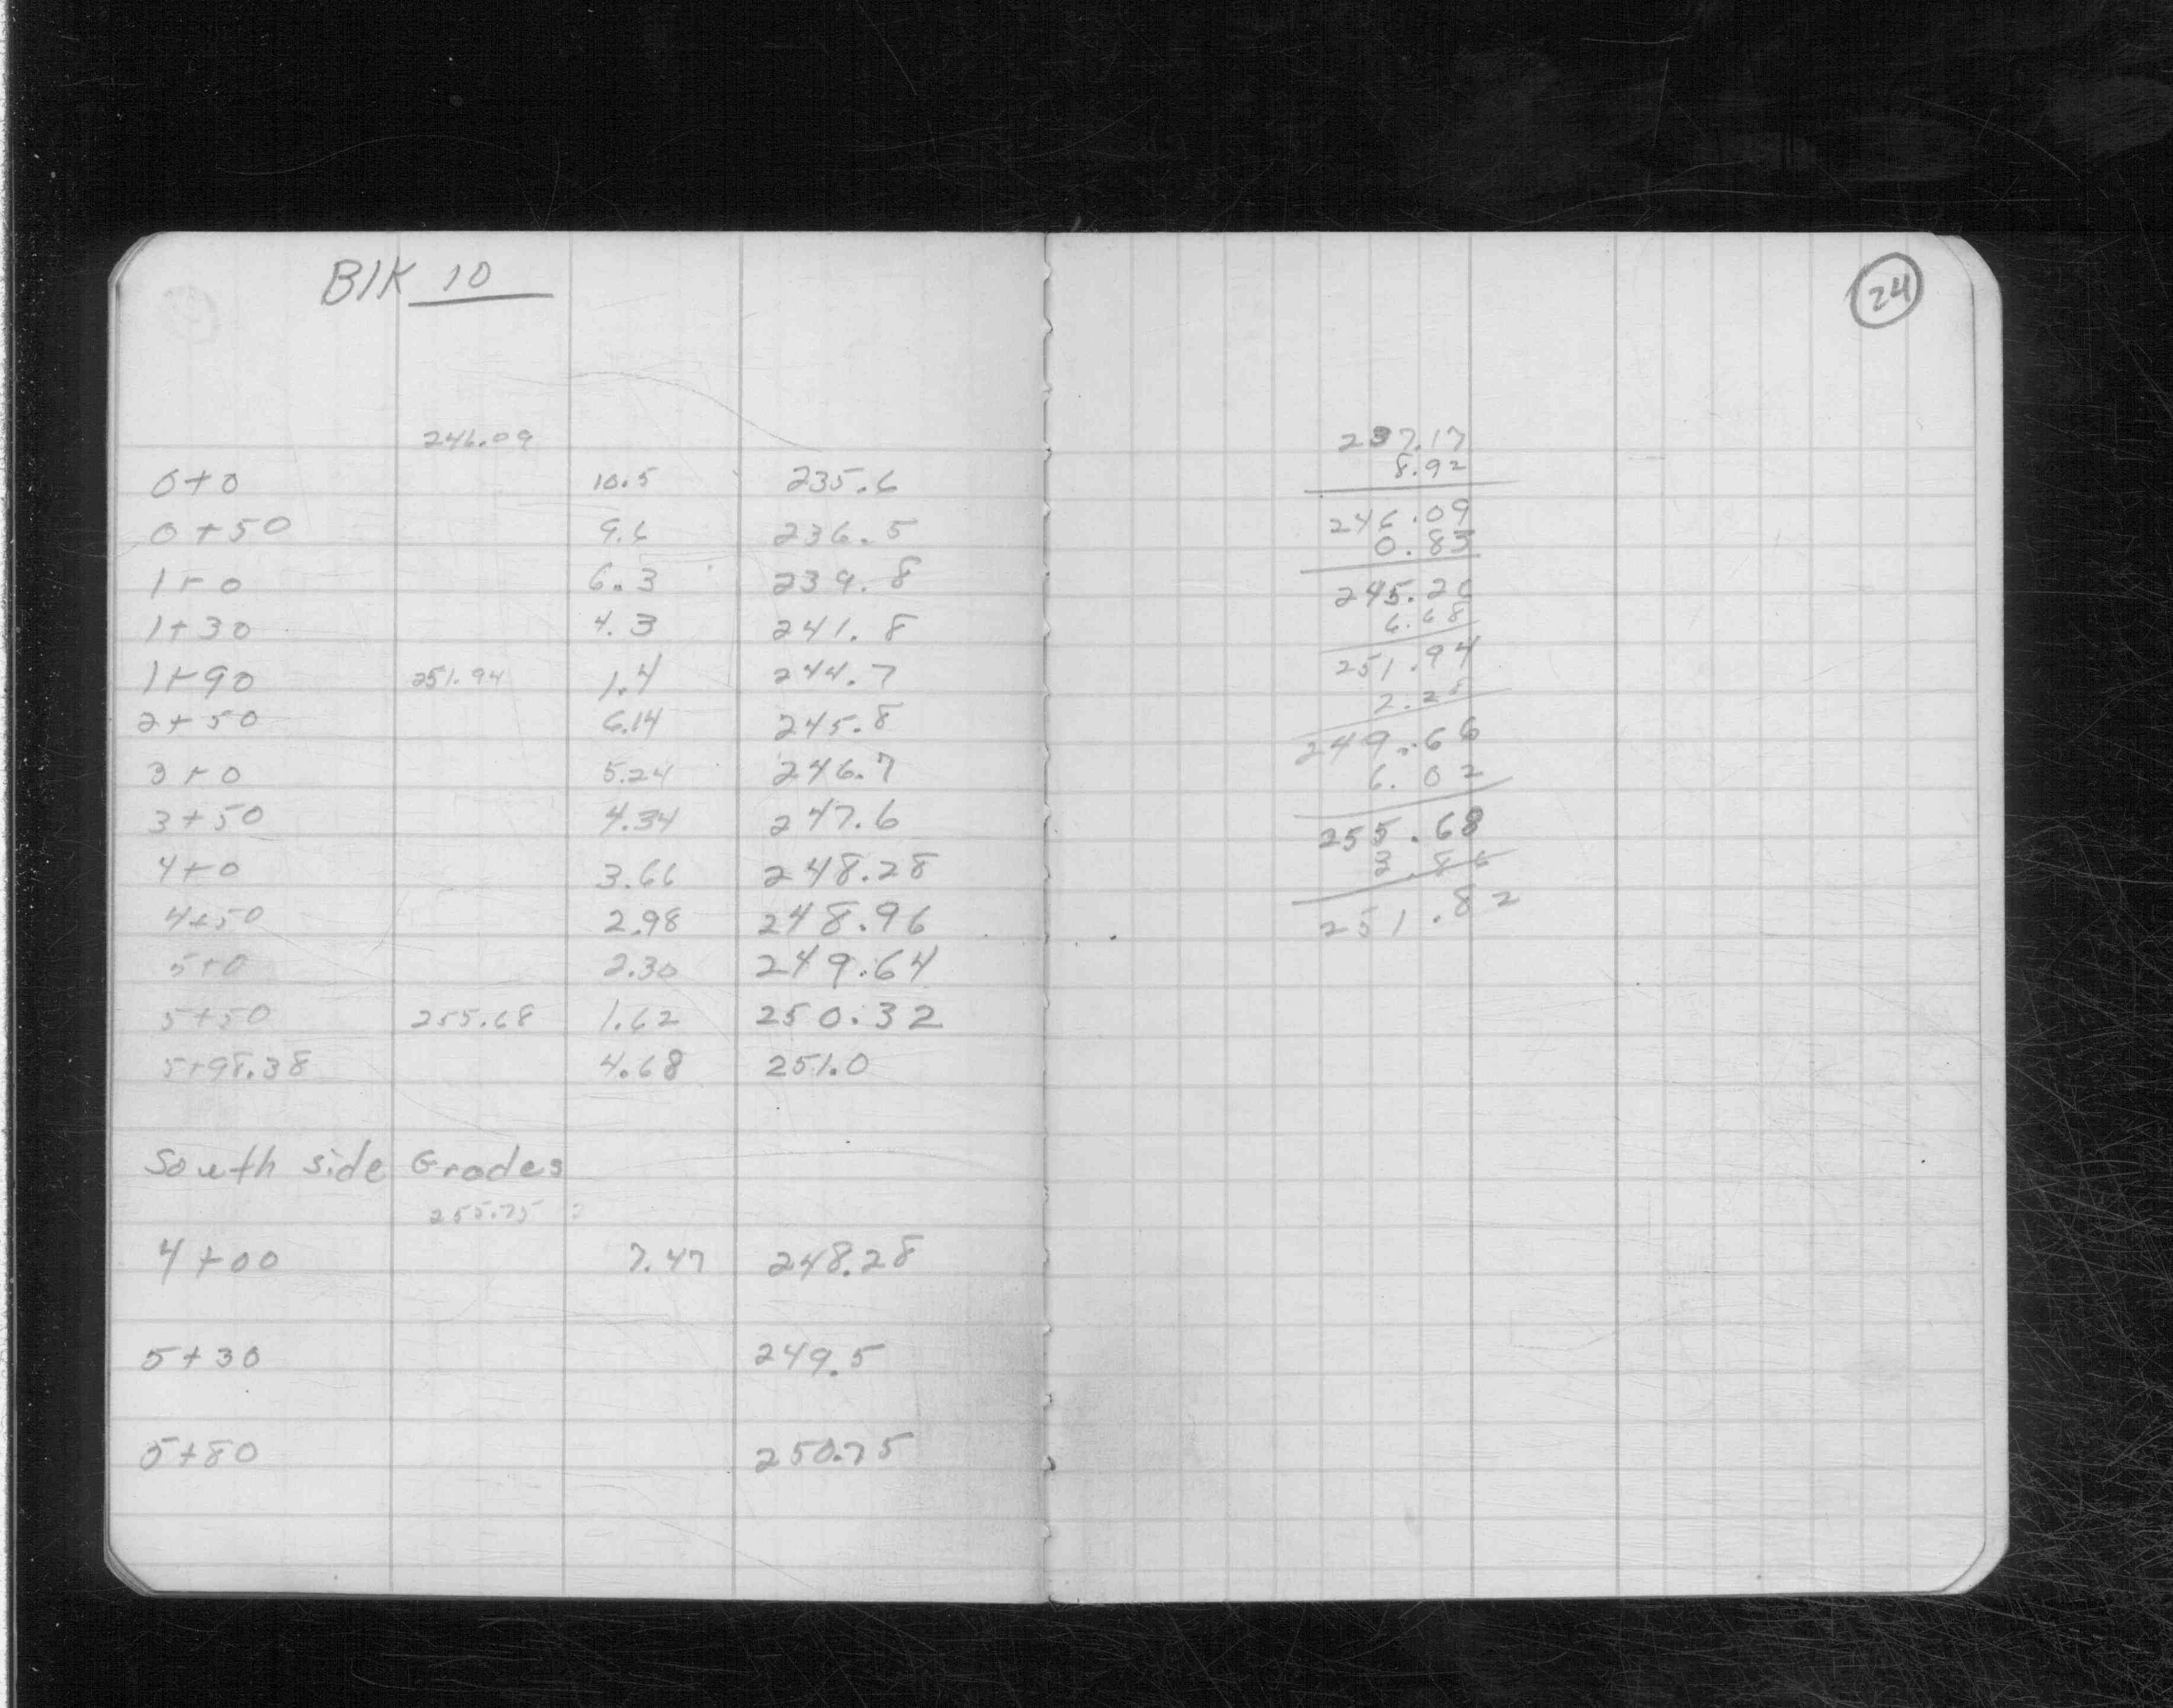 Blk 10
246.09
0+0 10.5 235.6
0+50 9.6 236.5
1+0 6.3 239.8
1+30 4.3 241.8
1+90 251.94 1.4 244.7
2+50 6.14 245.8
3+0 5.24 246.7
3+50 4.34 247.6
4+0 3.66 248.28
4+50 2.98 248.96
5+0 2.30 249.64
5+50 255.68 1.62 250.32
5+98.38 4.68 251.0
South side Grades
255.75
4+00 7.47 248.28
5+30 249.5
5+80 250.75
24
237.17
8.92
246.09
0.83
245.26
6.68
251.94
2.28
249.66
6.02
255.68
3.86
251.82